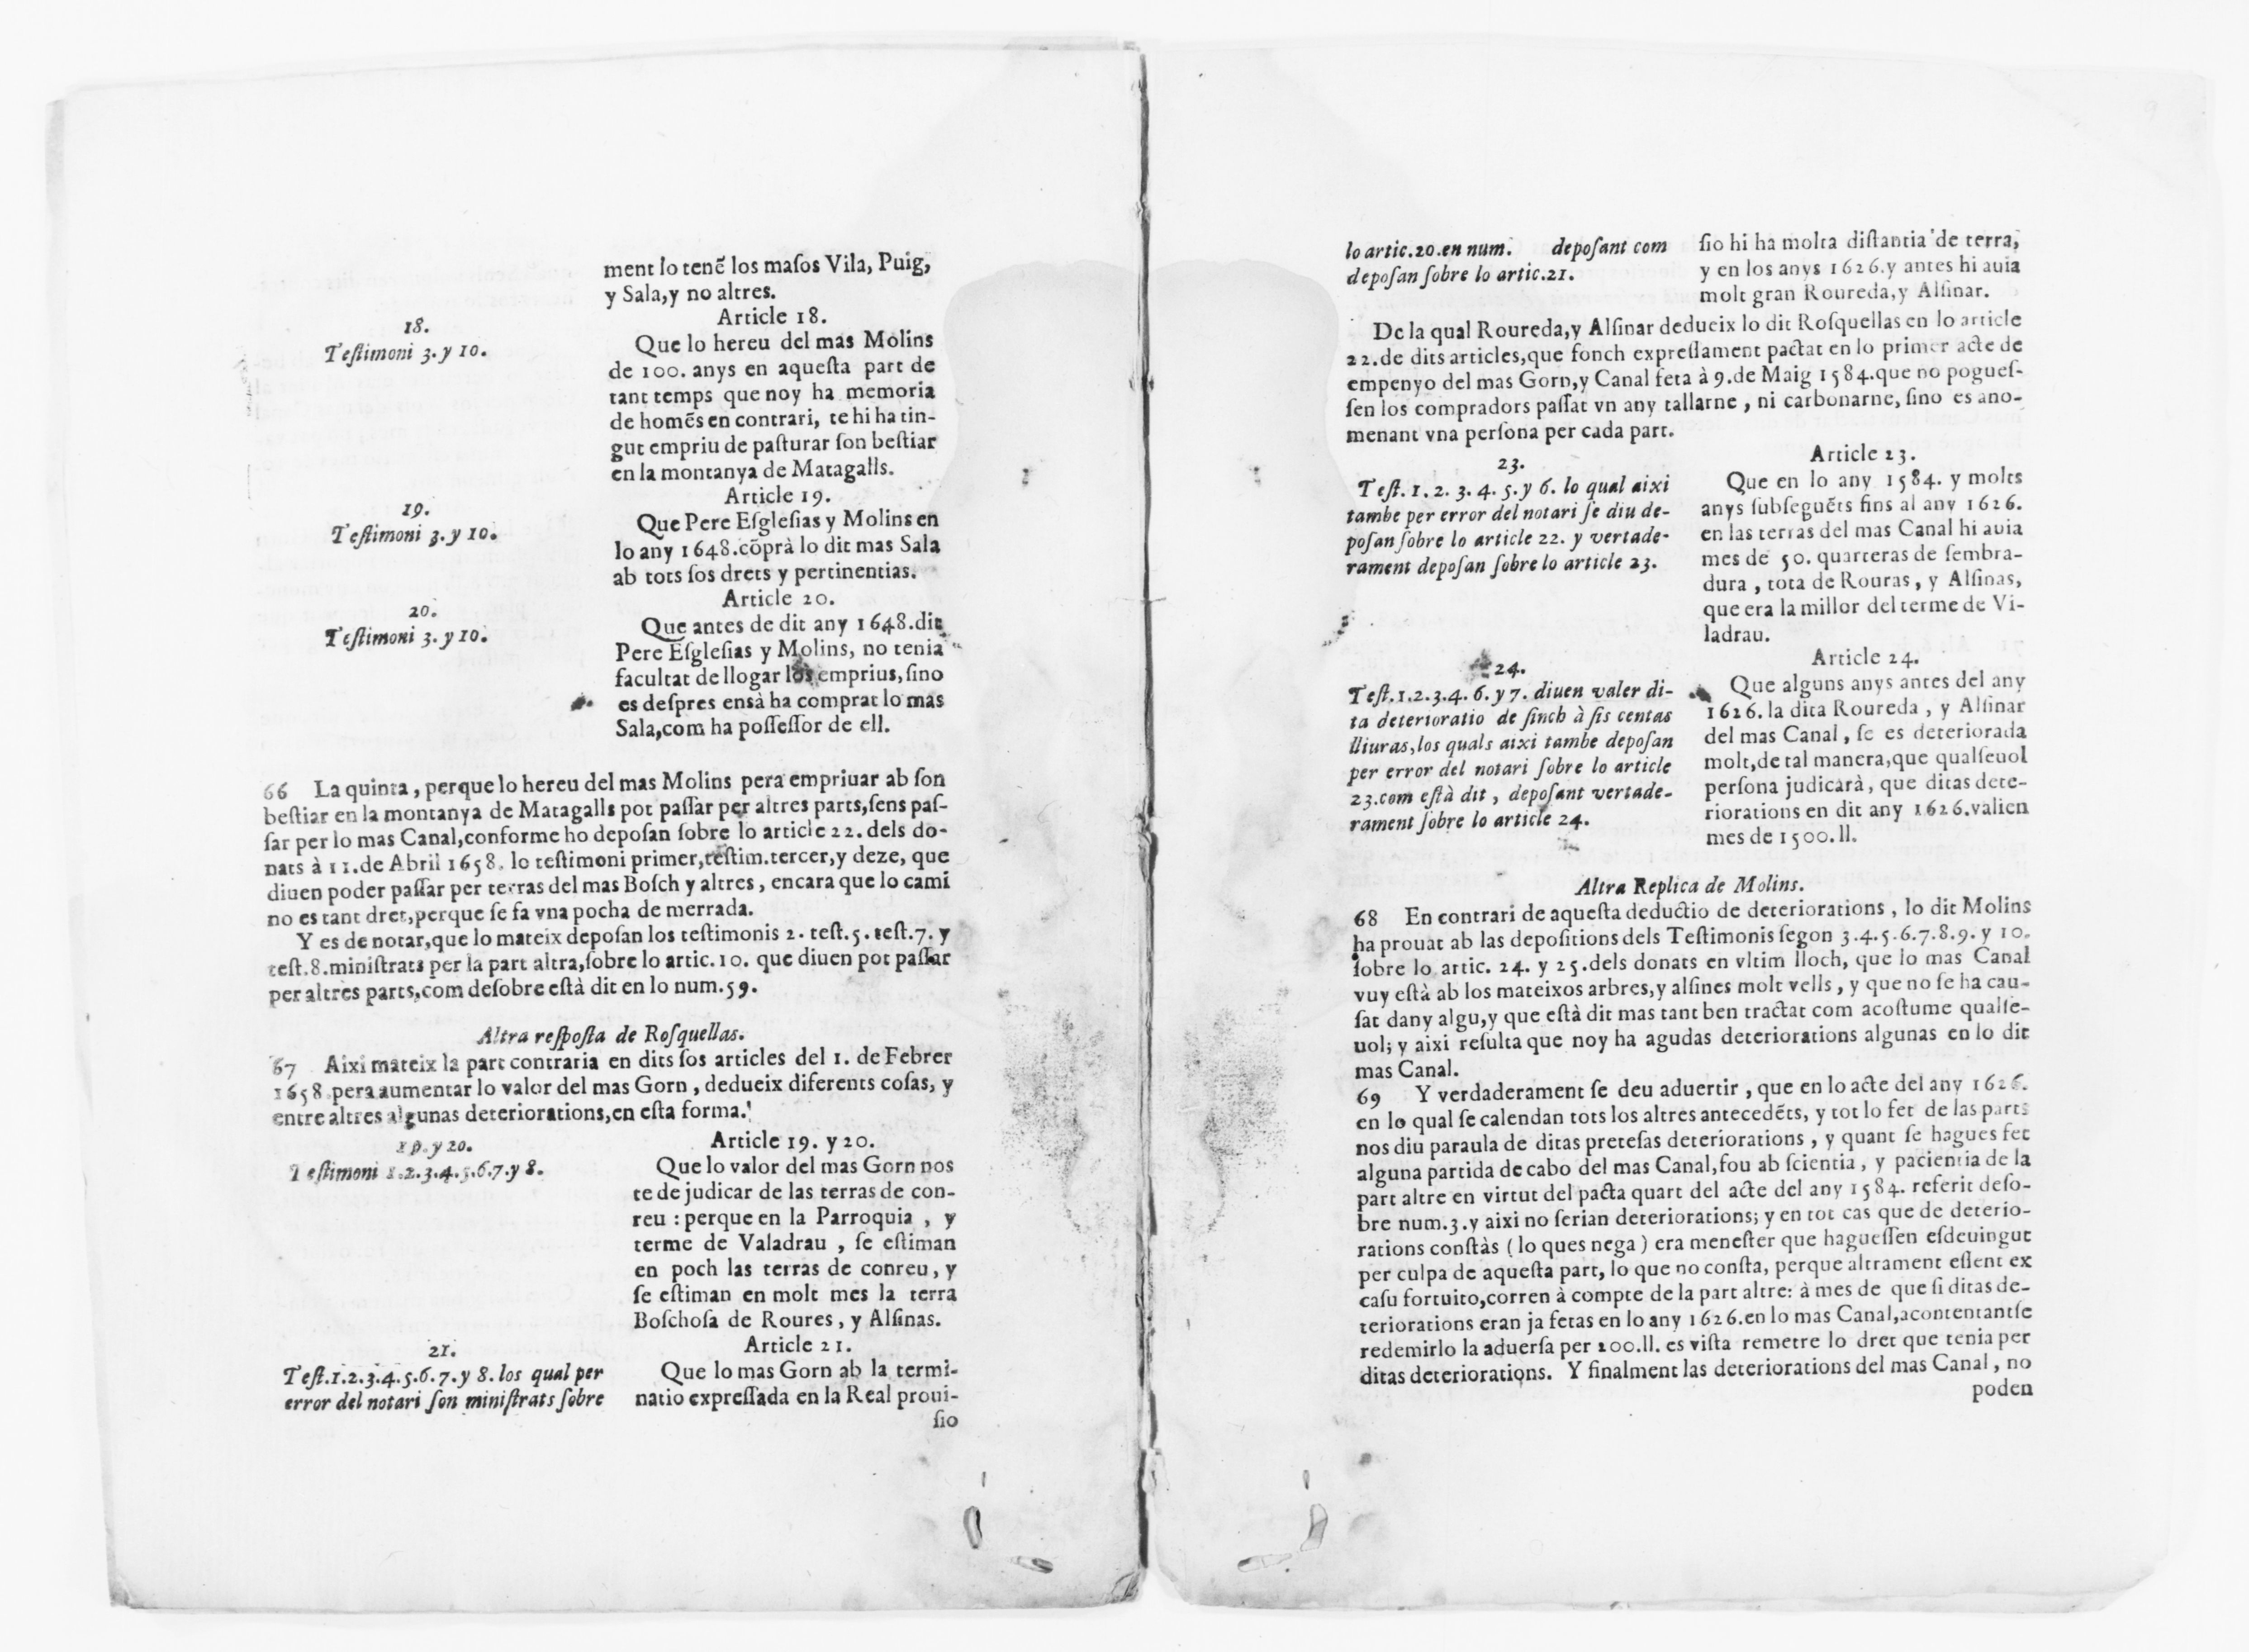 ment lo tenẽ los masos Vila, Puig,
y Sala,y no altres.
18.
Testimoni 3. y 10.
Article 18.
Que lo hereu del mas Molins
de 100. anys en aquesta part de
tant temps que noy ha memoria
de homẽs en contrari, te hi ha tin-
gut empriu de pasturar son bestiar
en la montanya de Matagalls.
19.
Testimoni 3. y 10.
Article 19.
Que Pere Esglesias y Molins en
lo any 1648.cõprà lo dit mas Sala
ab tots sos drets y pertinentias.
20.
Testimoni 3. y 10.
Article 20.
Que antes de dit any 1648.dit
Pere Esglesias y Molins, no tenia
facultat de llogar los emprius, sino
es despres ensà ha comprat lo mas
Sala,com ha possessor de ell.
66 La quinta, perque lo hereu del mas Molins pera empriuar ab son
bestiar en la montanya de Matagalls pot passar per altres parts,sens pas-
sar per lo mas Canal,conforme ho deposan sobre lo article 22. dels do-
nats à 11.de Abril 1658. lo testimoni primer,testim.tercer,y deze, que
diuen poder passar per terras del mas Bosch y altres, encara que lo cami
no es tant dret,perque se fa vna pocha de merrada.
Y es de notar,que lo mateix deposan los testimonis 2. test.5. test.7. y
test.8.ministrats per la part altra,sobre lo artic.10. que diuen pot passar
per altres parts,com desobre està dit en lo num.59.
Altra resposta de Rosquellas.
67 Aixi mateix la part contraria en dits sos articles del 1. de Febrer
1658.pera aumentar lo valor del mas Gorn, dedueix diferents cosas, y
entre altres algunas deteriorations,en esta forma.
19.y 20.
Testimoni 1.2.3.4.5.6.7.y 8.
Article 19. y 20.
Que lo valor del mas Gorn nos
te de judicar de las terras de con-
reu : perque en la Parroquia , y
terme de Valadrau , se estiman
en poch las terras de conreu, y
se estiman en molt mes la terra
Boschosa de Roures, y Alsinas.
21.
Test.1.2.3.4.5.6.7.y 8. los qual per
error del notari son ministrats sobre
Article 21.
Que lo mas Gorn ab la termi-
natio expressada en la Real proui-
sio
lo artic.20.en num. deposant com
deposan sobre lo artic.21.
sio hi ha molta distantia de terra,
y en los anys 1626.y antes hi auia
molt gran Roureda,y Alsinar.
De la qual Roureda,y Alsinar dedueix lo dit Rosquellas en lo article
22.de dits articles,que fonch expressament pactat en lo primer acte de
empenyo del mas Gorn,y Canal feta à 9.de Maig 1584.que no pogues-
sen los compradors passat vn any tallarne , ni carbonarne, sino es ano-
menant vna persona per cada part.
23.
Test. 1. 2. 3. 4. 5. y 6. lo qual aixi
tambe per error del notari se diu de-
posan sobre lo article 22. y vertade-
rament deposan sobre lo article 23.
Article 23.
Que en lo any 1584. y molts
anys subseguẽts fins al any 1626.
en las terras del mas Canal hi auia
mes de 50. quarteras de sembra-
dura , tota de Rouras, y Alsinas,
que era la millor del terme de Vi-
ladrau.
24.
Test.1.2.3.4. 6. y 7. diuen valer di-
ta deterioratio de sinch à sis centas
lliuras,los quals aixi tambe deposan
per error del notari sobre lo article
23.com està dit , deposant vertade-
rament sobre lo article 24.
Article 24.
Que alguns anys antes del any
1626. la dita Roureda , y Alsinar
del mas Canal, se es deteriorada
molt,de tal manera,que qualseuol
persona judicarà, que ditas dete-
riorations en dit any 1626.valien
mes de 1500.ll.
Altra Replica de Molins.
68 En contrari de aquesta deductio de deteriorations, lo dit Molins
ha prouat ab las depositions dels Testimonis segon 3.4.5.6.7.8.9. y 10.
sobre lo artic. 24. y 25.dels donats en vltim lloch, que lo mas Canal
vuy està ab los mateixos arbres,y alsines molt vells, y que no se ha cau-
sat dany algu,y que està dit mas tant ben tractat com acostume qualse-
uol; y aixi resulta que noy ha agudas deteriorations algunas en lo dit
mas Canal.
69 Y verdaderament se deu aduertir, que en lo acte del any 1626.
en lo qual se calendan tots los altres antecedẽts, y tot lo fet de las parts
nos diu paraula de ditas pretesas deteriorations, y quant se hagues fet
alguna partida de cabo del mas Canal,fou ab scientia, y pacientia de la
part altre en virtut del pacta quart del acte del any 1584. referit deso-
bre num.3.y aixi no serian deteriorations; y en tot cas que de deterio-
rations constàs (lo ques nega) era menester que haguessen esdeuingut
per culpa de aquesta part, lo que no consta, perque altrament essent ex
casu fortuito,corren à compte de la part altre: à mes de que si ditas de-
teriorations eran ja fetas en lo any 1626.en lo mas Canal,acontentantse
redemirlo la aduersa per 200.ll. es vista remetre lo dret que tenia per
ditas deteriorations. Y finalment las deteriorations del mas Canal, no
poden